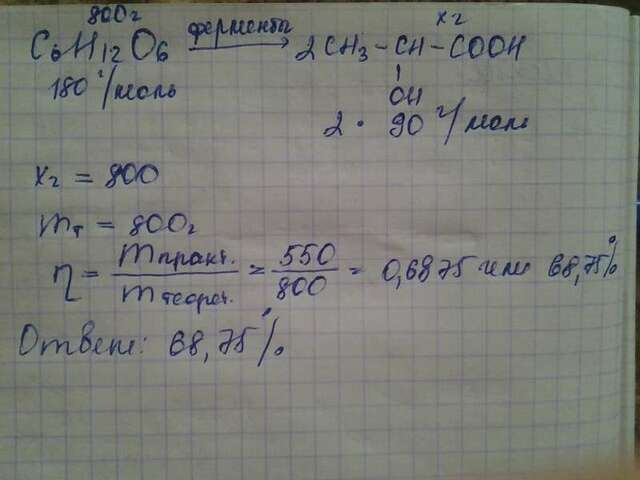 800г хг
C6H12O6 ферменты → 2CH3 – CH – COOH
OH
180 г/моль
2 · 90 г/моль
хг = 800
mт = 800г
η = mпракт. / mтеорет. = 550 / 800 = 0,6875 или 68,75%
Ответ: 68,75%